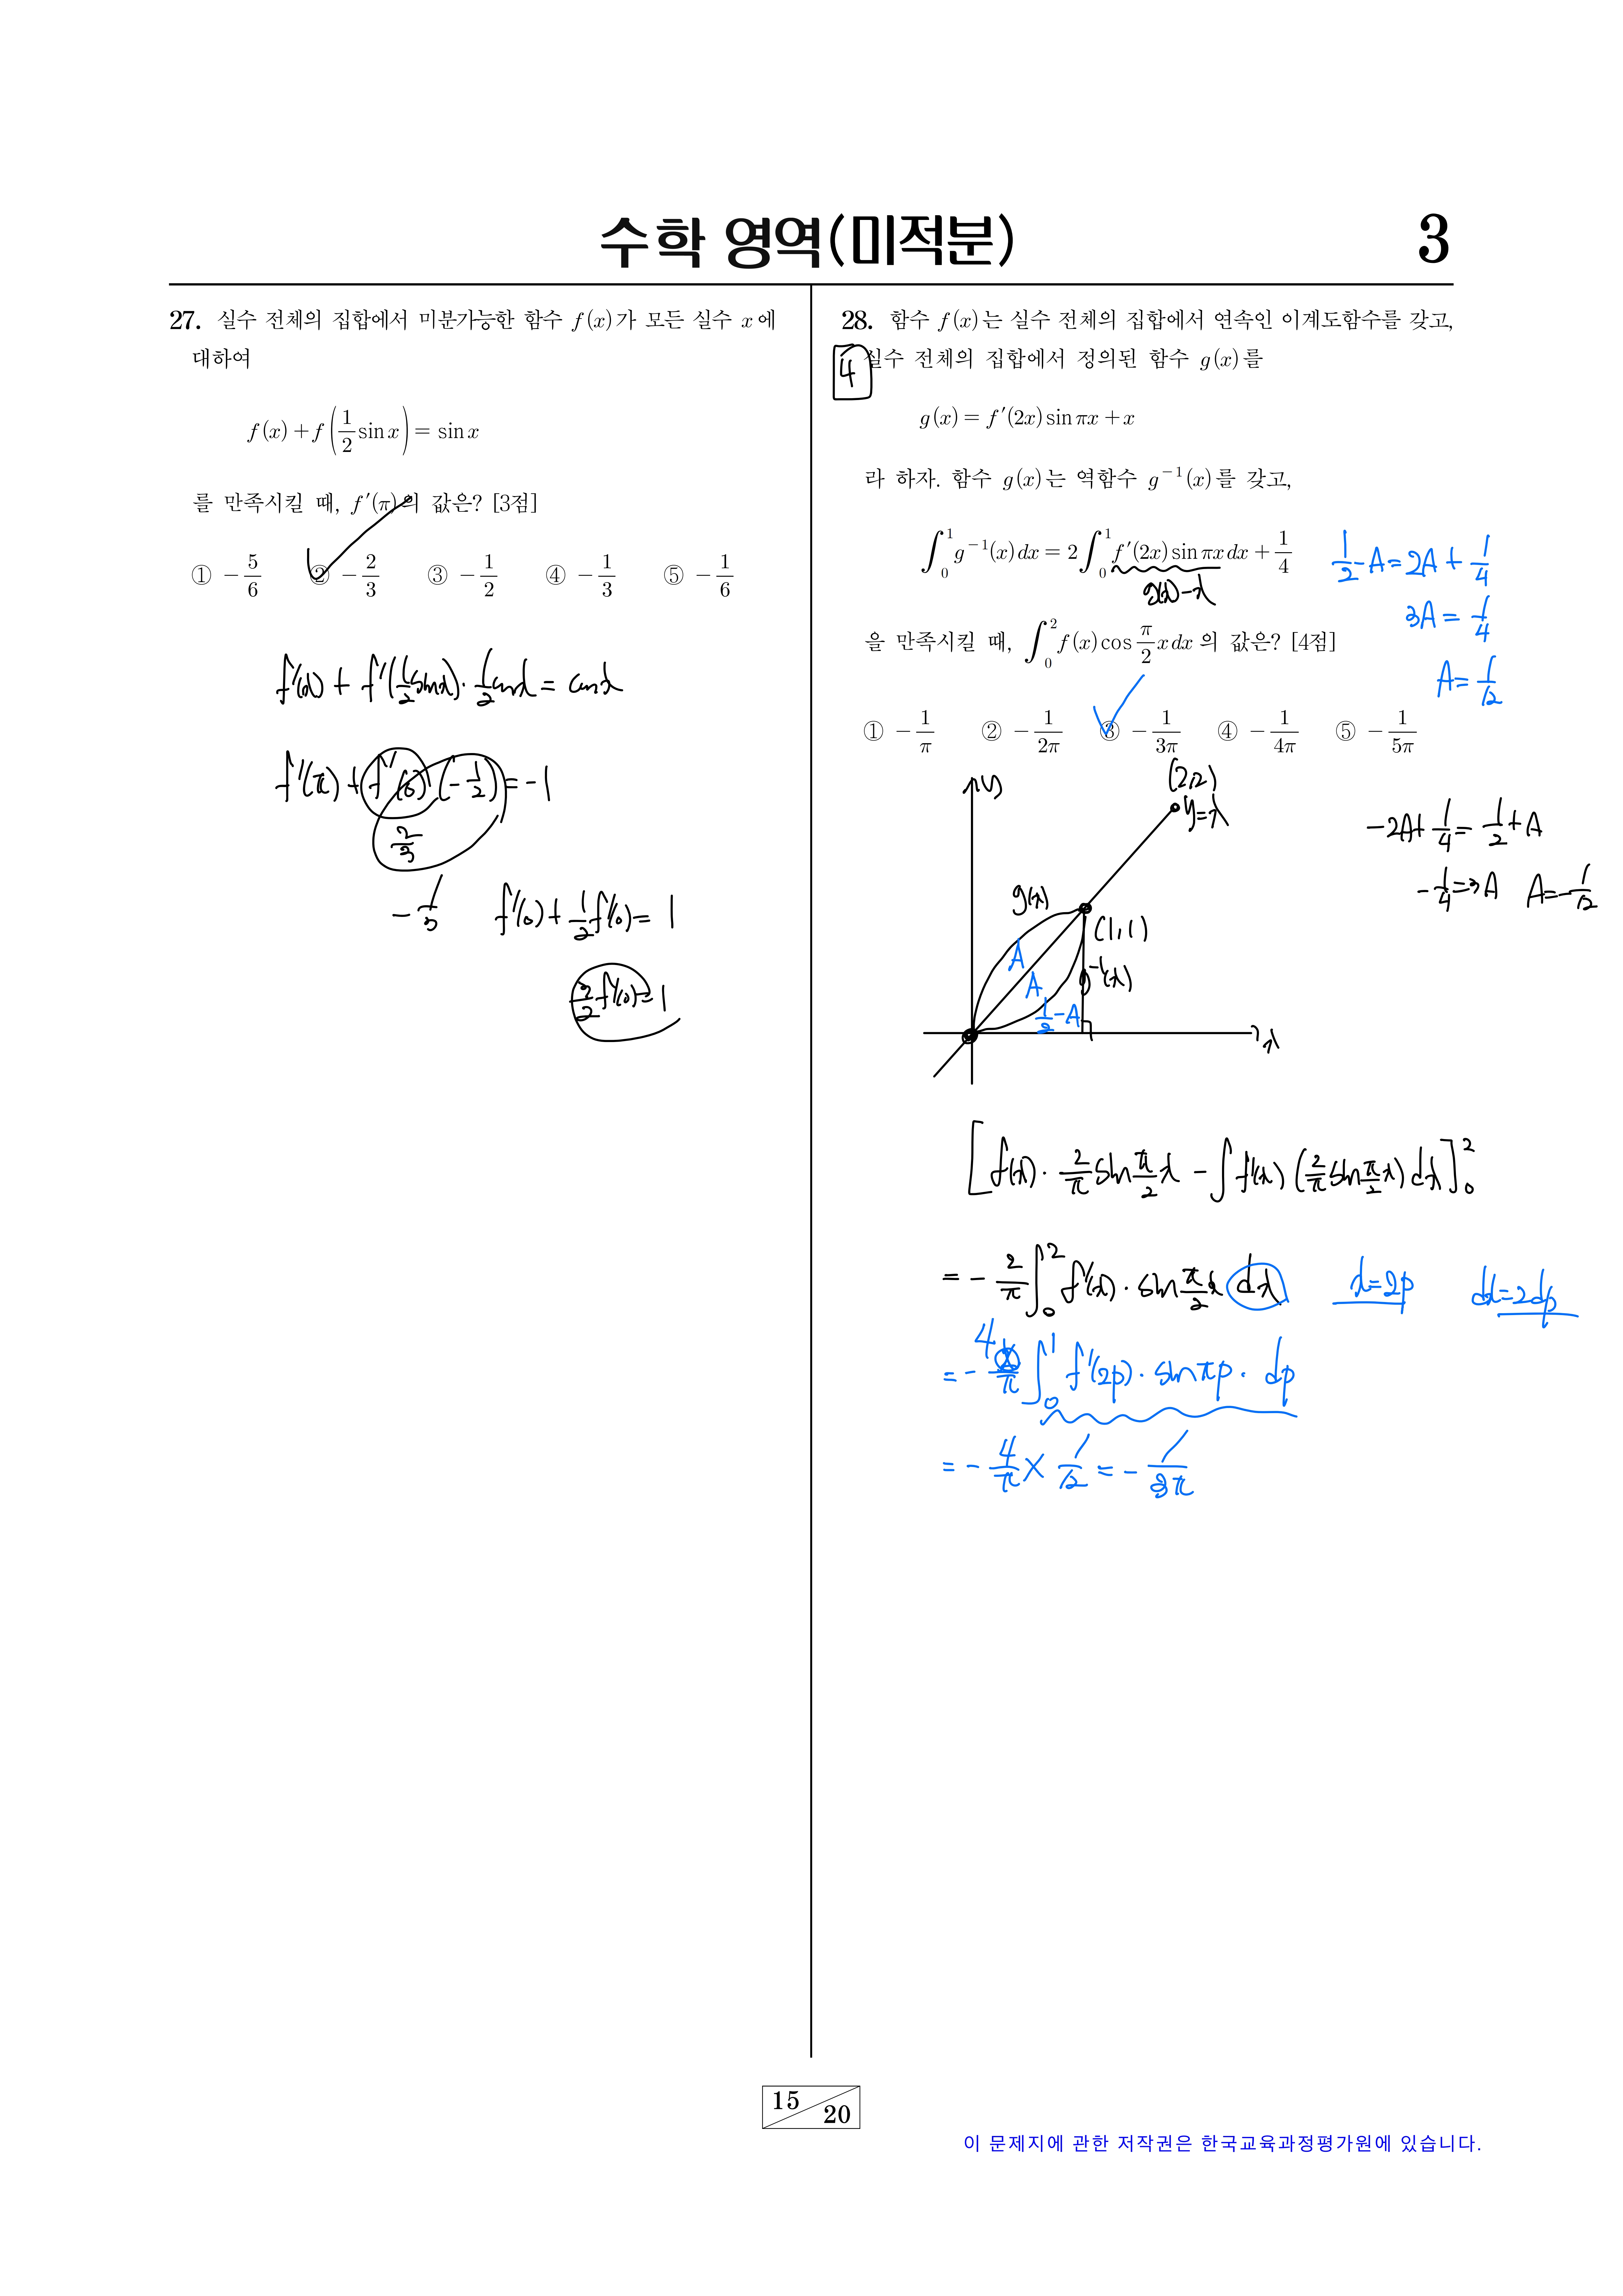 수학 영역(미적분)
3
27. 실수 전체의 집합에서 미분가능한 함수 f(x)가 모든 실수 x에
대하여
f(x)+f(1/2 sin x)= sin x
를 만족시킬 때, f′(π)의 값은? [3점]
① −5/6 ② −2/3 ③ −1/2 ④ −1/3 ⑤ −1/6
f′(x) + f′(1/2 sinx)·1/2 cosx = cosx
f′(π) + f′(0)(−1/2) = −1
2/3
−1/3
f′(0) + 1/2 f′(0) = 1
3/2 f′(0) = 1
28. 함수 f(x)는 실수 전체의 집합에서 연속인 이계도함수를 갖고,
4
실수 전체의 집합에서 정의된 함수 g(x)를
g(x)= f′(2x)sin πx + x
라 하자. 함수 g(x)는 역함수 g⁻¹(x)를 갖고,
∫₀¹ g⁻¹(x)dx = 2∫₀¹ f′(2x)sin πx dx + 1/4
g(x)−x
을 만족시킬 때, ∫₀² f(x)cos π/2 x dx의 값은? [4점]
① −1/π ② −1/2π ③ −1/3π ④ −1/4π ⑤ −1/5π
1/2 − A = 2A + 1/4
3A = 1/4
A = 1/12
y
(2,2)
y=x
g(x)
(1,1)
A
A
g⁻¹(x)
1/2−A
x
−2A + 1/4 = 1/2 + A
−1/4 = 3A A = −1/12
[f(x)·2/π sin π/2 x − ∫f′(x)(2/π sin π/2 x)dx]₀²
= −2/π ∫₀² f′(x)·sin π/2 x dx x=2p dx=2dp
= −4/π ∫₀¹ f′(2p)·sin πp·dp
= −4/π × 1/12 = −1/3π
15
20
이 문제지에 관한 저작권은 한국교육과정평가원에 있습니다.